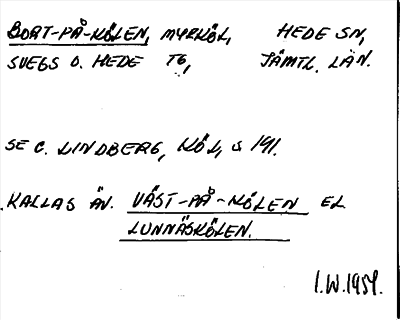 BORT-PÅ-KÖLEN, MYRKÖL, HEDE SN,
SVEGS O. HEDE TG, JÄMTL. LÄN.
SE C. LINDBERG, KÖL, S 191.
KALLAS ÄV. VÄST-PÅ-KÖLEN EL
LUNNÄSKÖLEN.
I.W. 1959.